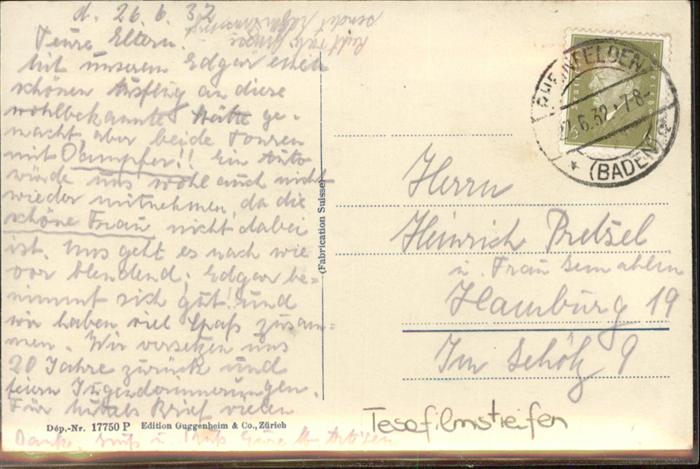 d. 26.6.32
Teure Eltern!
Mit unserem Edgar einen
schönen Ausflug an diese
wohlbekannte Stätte ge-
macht, aber beide Touren
mit Dampfer!! Ein Auto
würde uns wohl auch nicht
wieder mitnehmen, da die
schöne Frau nicht dabei
ist. Uns geht es nach wie
vor blendend; Edgar be-
nimmt sich gut und
wir haben viel Spaß zusam-
men. Wir versetzen uns
20 Jahre zurück und
feiern Jugenderinnerungen.
Für Brief vielen
Dank. Gruß u. Kuß Eure
Dép.-Nr. 17750 P Edition Guggenheim & Co., Zürich
(Fabrication Suisse)
RHEINFELDEN
6.32.7-8
(BADEN)
Herrn
Heinrich Pretzel
u. Frau Gemahlin
Hamburg 19
Im Gehölz 9
Tesafilmstreifen